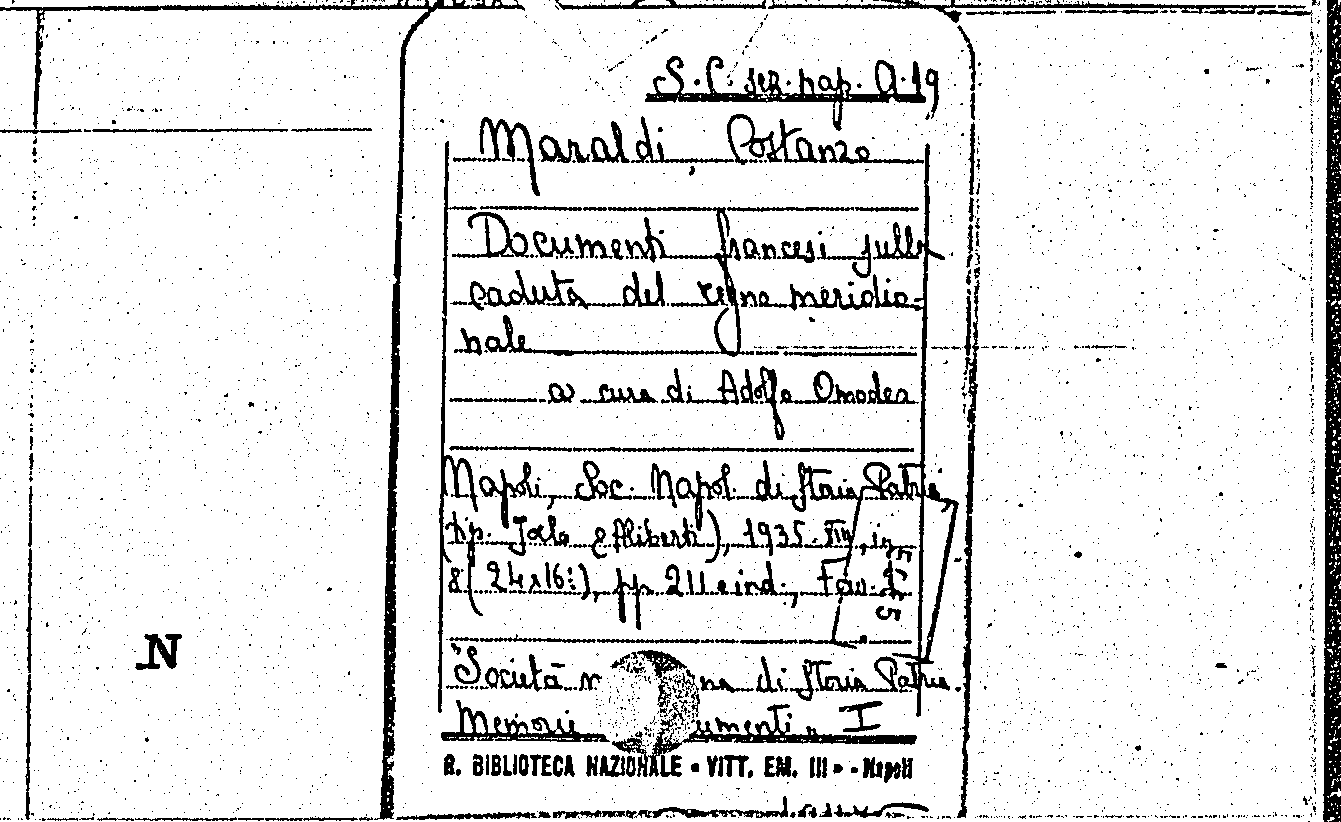 S.C. sez. nap. A.19
Maraldi, Costanzo
Documenti francesi sulla
caduta del regno meridio=
nale
a cura di Adolfo Omodeo
Napoli, Soc. Napol. di Storia Patria,
(tip. & Aliberti), 1935-XIII, in
8 (24x16:), pp 211 e ind.,
"Società na di Storia Patria.
Memorie umenti" I
R. BIBLIOTECA NAZIONALE "VITT. EM. III" - Napoli
N